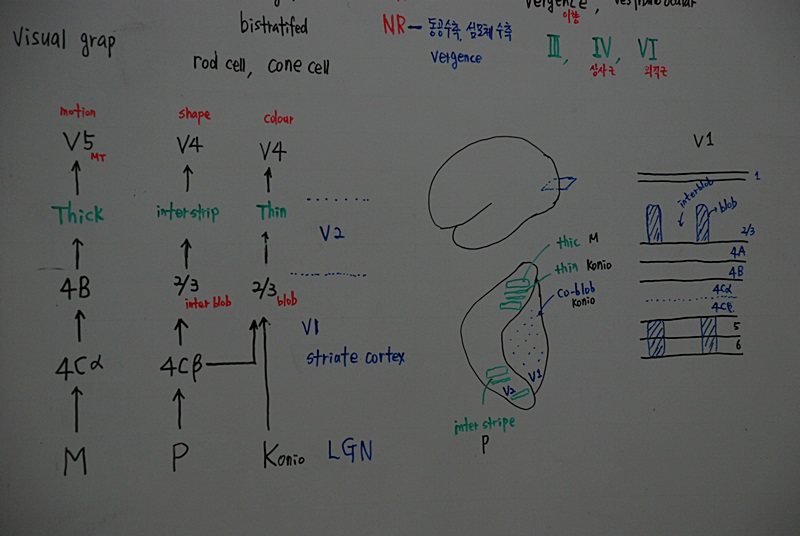 vergence,
이향
Visual grap
bistratifed
NR — 동공수축, 섬모체 수축
vergence
rod cell, cone cell
III, IV, VI
상사근
외직근
motion
shape
colour
V5
MT
V4
V4
Thick
interstrip
Thin
V2
4B
2/3
inter blob
2/3
blob
V1
striate cortex
4Cα
4Cβ
M
P
Konio
LGN
thic M
thin Konio
co-blob
Konio
V1
V2
inter stripe
P
V1
1
interblob
blob
2/3
4A
4B
4Cα
4Cβ
5
6